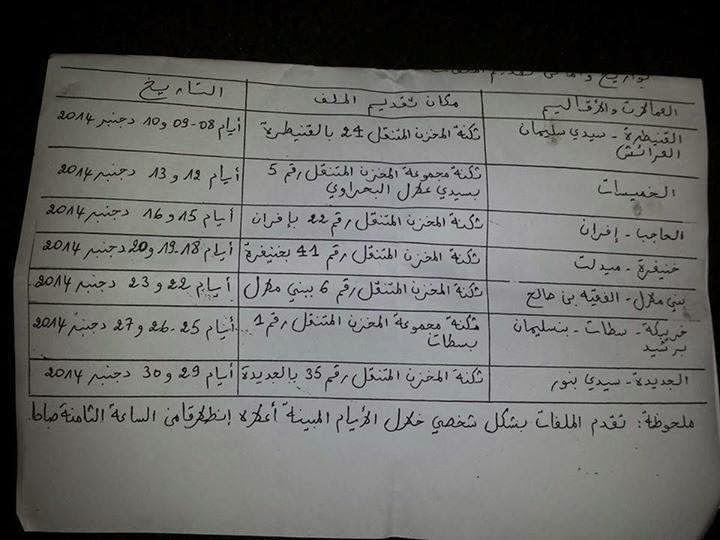 تواريخ وأماكن تقديم الملفات
العمالات والأقاليم	مكان تقديم الملف	التاريخ
القنيطرة - سيدي سليمان	ثكنة المخزن المتنقل 24 بالقنيطرة	أيام 08-09 و 10 دجنبر 2014
العرائش
الخميسات	ثكنة مجموعة المخزن المتنقل رقم 5	أيام 12 و 13 دجنبر 2014
بسيدي علال البحراوي
الحاجب - إفران	ثكنة المخزن المتنقل رقم 22 بإفران	أيام 15 و 16 دجنبر 2014
خنيفرة - ميدلت	ثكنة المخزن المتنقل رقم 41 بخنيفرة	أيام 18-19 و 20 دجنبر 2014
بني ملال - الفقيه بن صالح	ثكنة المخزن المتنقل رقم 6 ببني ملال	أيام 22 و 23 دجنبر 2014
خريبكة - سطات - بنسليمان	ثكنة مجموعة المخزن المتنقل رقم 1	أيام 25-26 و 27 دجنبر 2014
برشيد	بسطات
الجديدة - سيدي بنور	ثكنة المخزن المتنقل رقم 35 بالجديدة	أيام 29 و 30 دجنبر 2014
ملحوظة: تقدم الملفات بشكل شخصي خلال الأيام المبينة أعلاه إنطلاقا من الساعة الثامنة صباحا